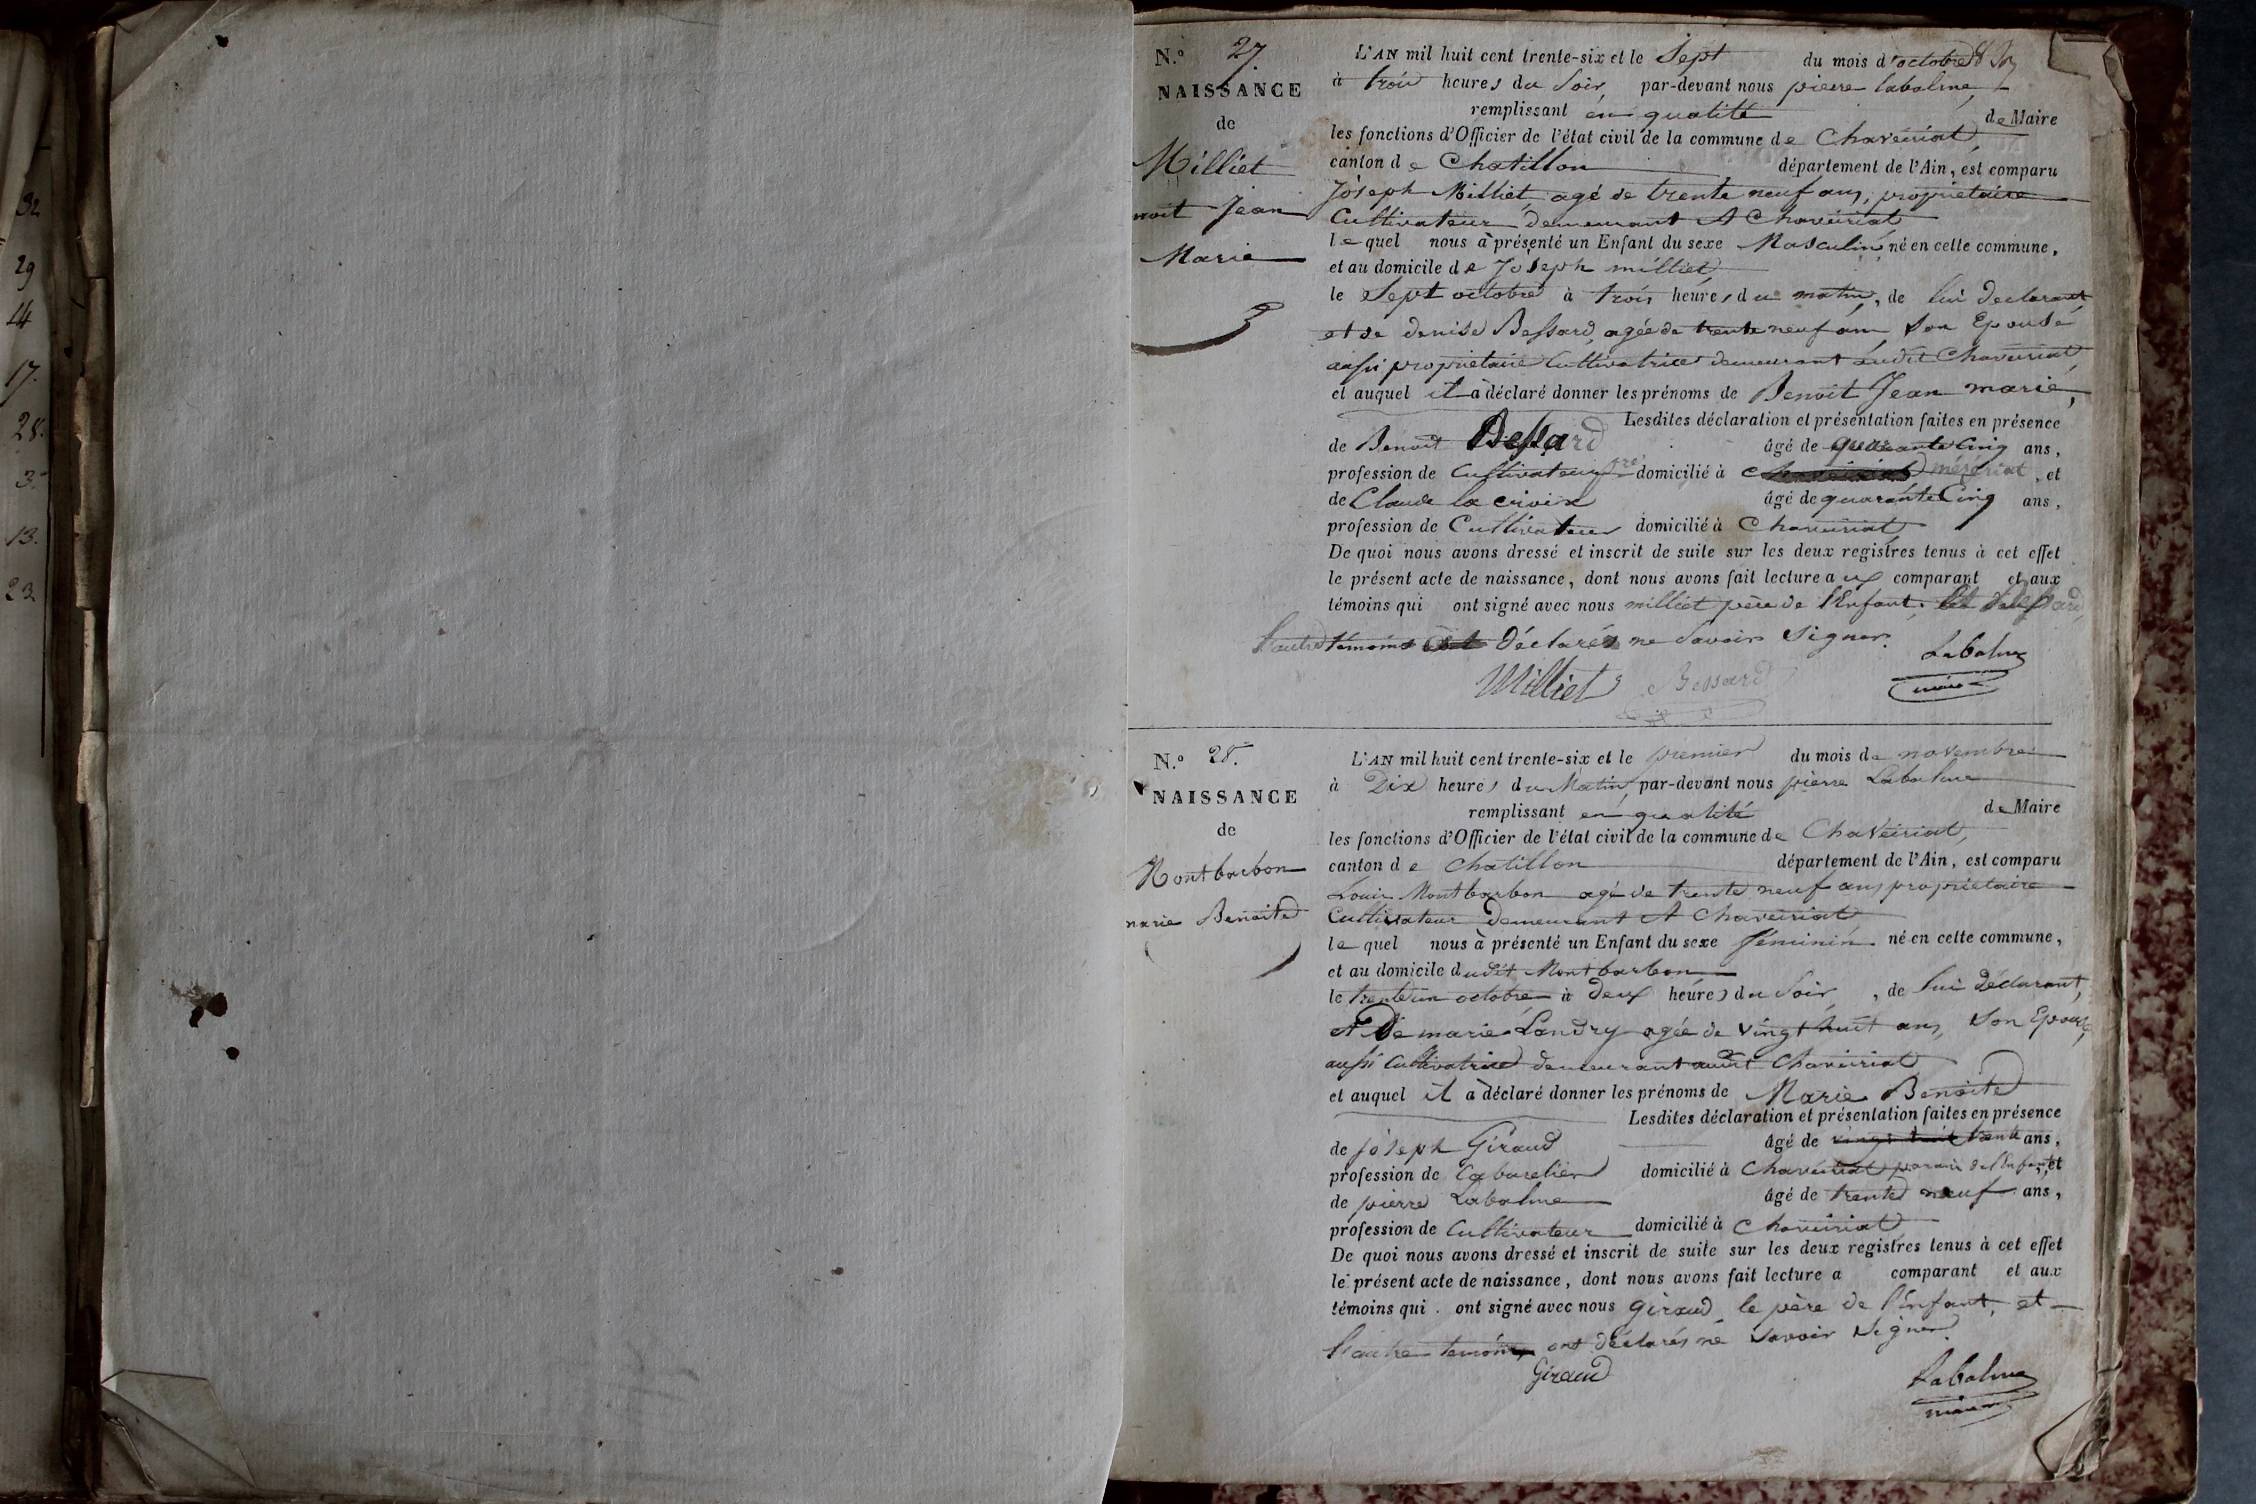 32
29
14
17.
28.
3.
13.
23
N.º 27.
NAISSANCE
de
Milliet
noit Jean
Marie
L'AN mil huit cent trente-six et le Sept du mois d'octobre
à trois heures du Soir, par-devant nous pierre labalme,
remplissant en qualité de Maire
les fonctions d'Officier de l'état civil de la commune de Chaveiriat,
canton de Chatillon département de l'Ain, est comparu
Joseph Milliet, agé de trente neuf ans, propriétaire
Cultivateur demeurant A Chaveiriat
lequel nous à présenté un Enfant du sexe Masculin, né en cette commune,
et au domicile de Joseph milliet
le Sept octobre à trois heures du matin, de lui declarant
et de denise Bessard, agée de trente neuf ans Son Epouse
aussi propriétaire Cultivatrice demeurant audit Chaveiriat,
et auquel il à déclaré donner les prénoms de Benoit Jean marie,
Lesdites déclaration et présentation faites en présence
de Benoit Bessard âgé de quarante Cinq ans,
profession de Cultivateur pre domicilié à mézériat, et
de Claude la croix âgé de quarante Cinq ans,
profession de Cultivateur domicilié à Chaveiriat
De quoi nous avons dressé et inscrit de suite sur les deux registres tenus à cet effet
le présent acte de naissance, dont nous avons fait lecture aux comparant et aux
témoins qui ont signé avec nous milliet père de l'Enfant. Bessard
l'autre témoins déclaré ne Savoir Signer.
Labalme
maire
Milliet Bessard
N.º 28.
NAISSANCE
de
Montbarbon
marie Benoite
L'AN mil huit cent trente-six et le premier du mois de novembre
à Dix heures du Matin, par-devant nous pierre Labalme
remplissant en qualité de Maire
les fonctions d'Officier de l'état civil de la commune de Chaveiriat,
canton de Chatillon département de l'Ain, est comparu
Louis Montbarbon agé de trente neuf ans propriétaire
Cultivateur demeurant A Chaveiriat
lequel nous à présenté un Enfant du sexe féminin né en cette commune,
et au domicile dudit Montbarbon
le trente un octobre à deux heures du Soir, de lui déclarant,
et De marie Landry agée de vingt huit ans, Son Epouse,
aussi Cultivatrice demeurant audit Chaveiriat
et auquel il à déclaré donner les prénoms de Marie Benoite
Lesdites déclaration et présentation faites en présence
de joseph Giraud âgé de vingt huit trente ans,
profession de Cabaretier domicilié à Chaveiriat parain de l'enfant, et
de pierre Labalme âgé de trente neuf ans,
profession de Cultivateur domicilié à Chaveiriat
De quoi nous avons dressé et inscrit de suite sur les deux registres tenus à cet effet
le présent acte de naissance, dont nous avons fait lecture a comparant et aux
témoins qui ont signé avec nous Giraud, le père de l'enfant, et
l'autre temoins ont déclarés ne Savoir Signer.
Giraud
Labalme
maire